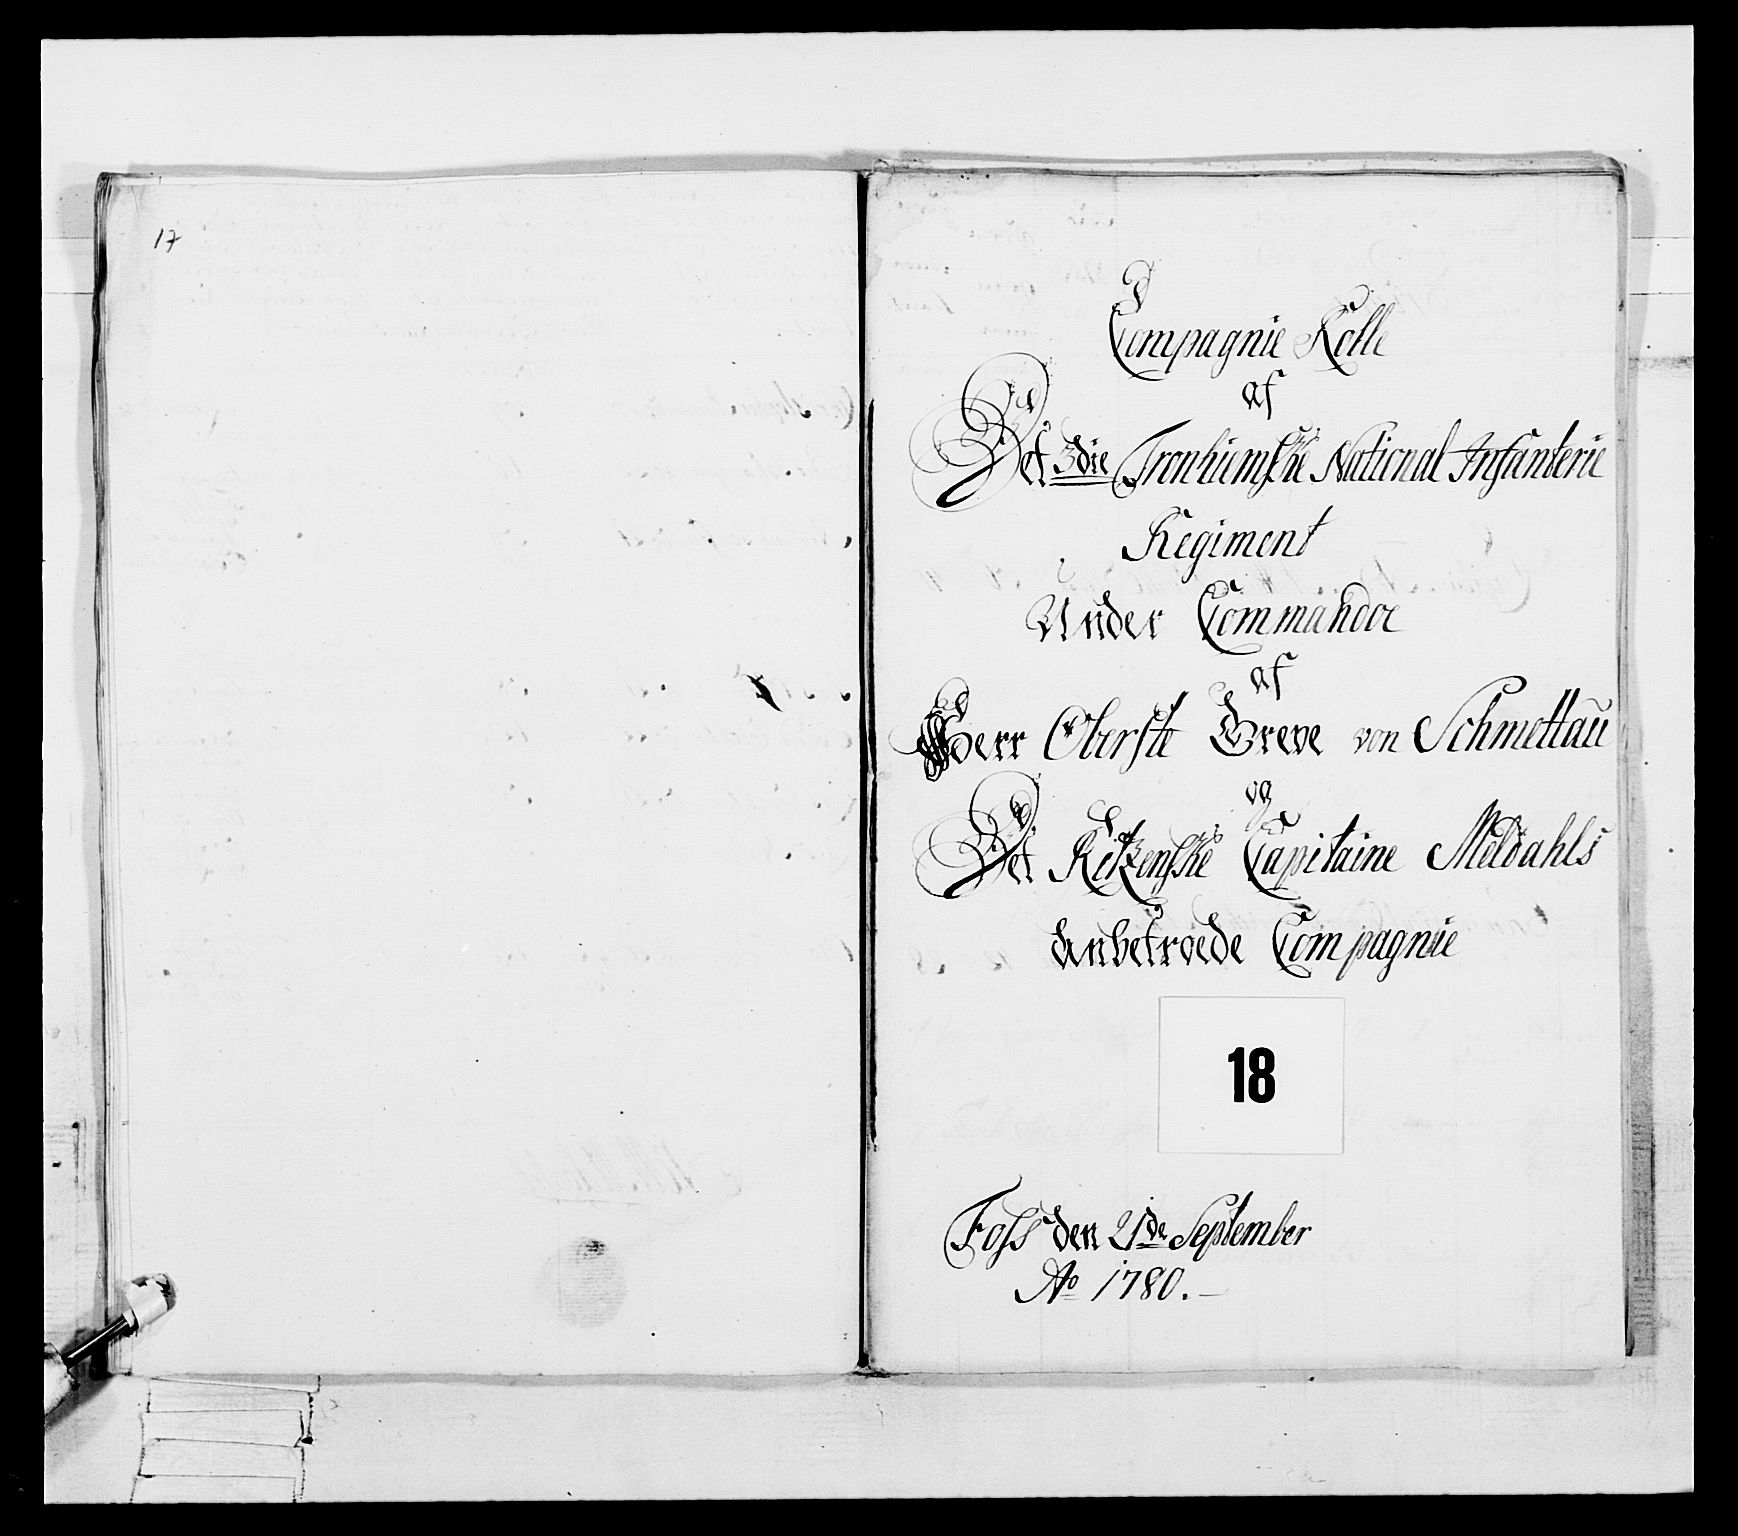 17
Compagnie Rolle
af
Det 3die Tronhiemske National Infanterie
Regiment
Under Commandoe
af
Herr Oberste Greve von Schmettau
og
Det Ritzenske Capitaine Meldahls
Anbetroede Compagnie
18
Foss den 21de September
Ao 1780.